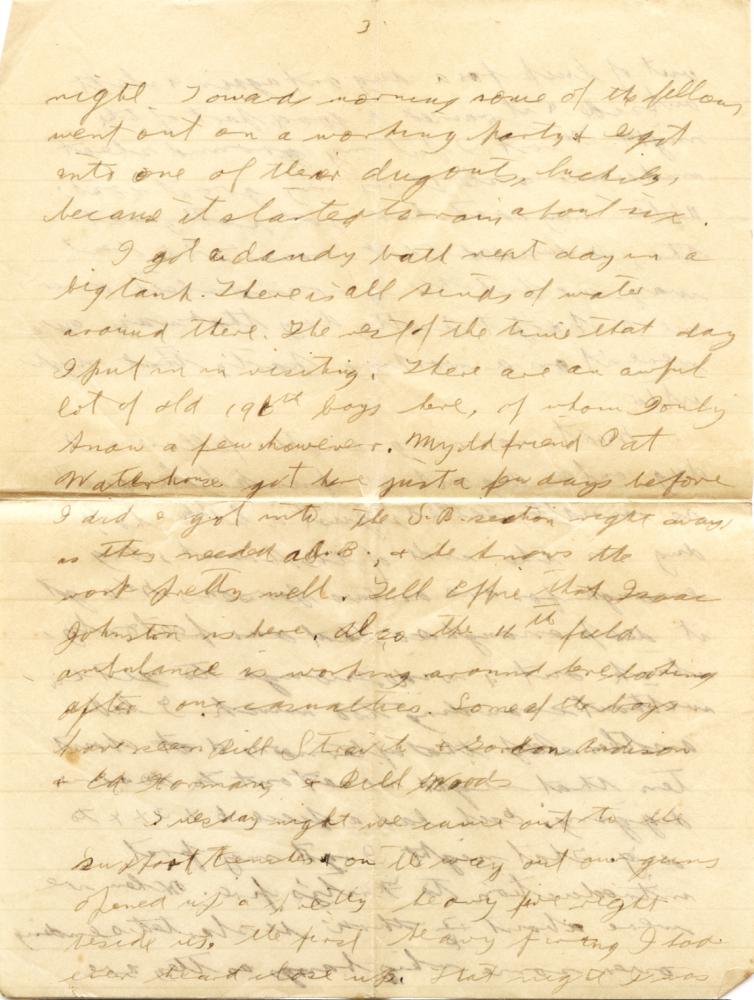 3.
night. Towards morning some of the fellows
went out on a working party & I got
into one of their dugouts, luckily,
because it started to rain about six.
I got a dandy bath next day in a
big tank. There is all kinds of water
around there. The rest of the time that day
I put in in visiting. There are an awful
lot of old 196th boys here, of whom I only
know a few however. My old friend Pat
Waterhouse got here just a few days before
I did & got into the S.B. section right away
as they needed a S.B., & he knows the
work pretty well. Tell Effie that Isaac
Johnston is here. Also the 11th field
ambulance is working around here looking
after our casualties. Some of the boys
have seen Bill & Gordon
& Ed & Bill Woods
Tuesday night we came out to the
support trenches & on the way out our guns
opened up a pretty heavy fire right
beside us, the first heavy firing I had
ever heard close up. That night I was